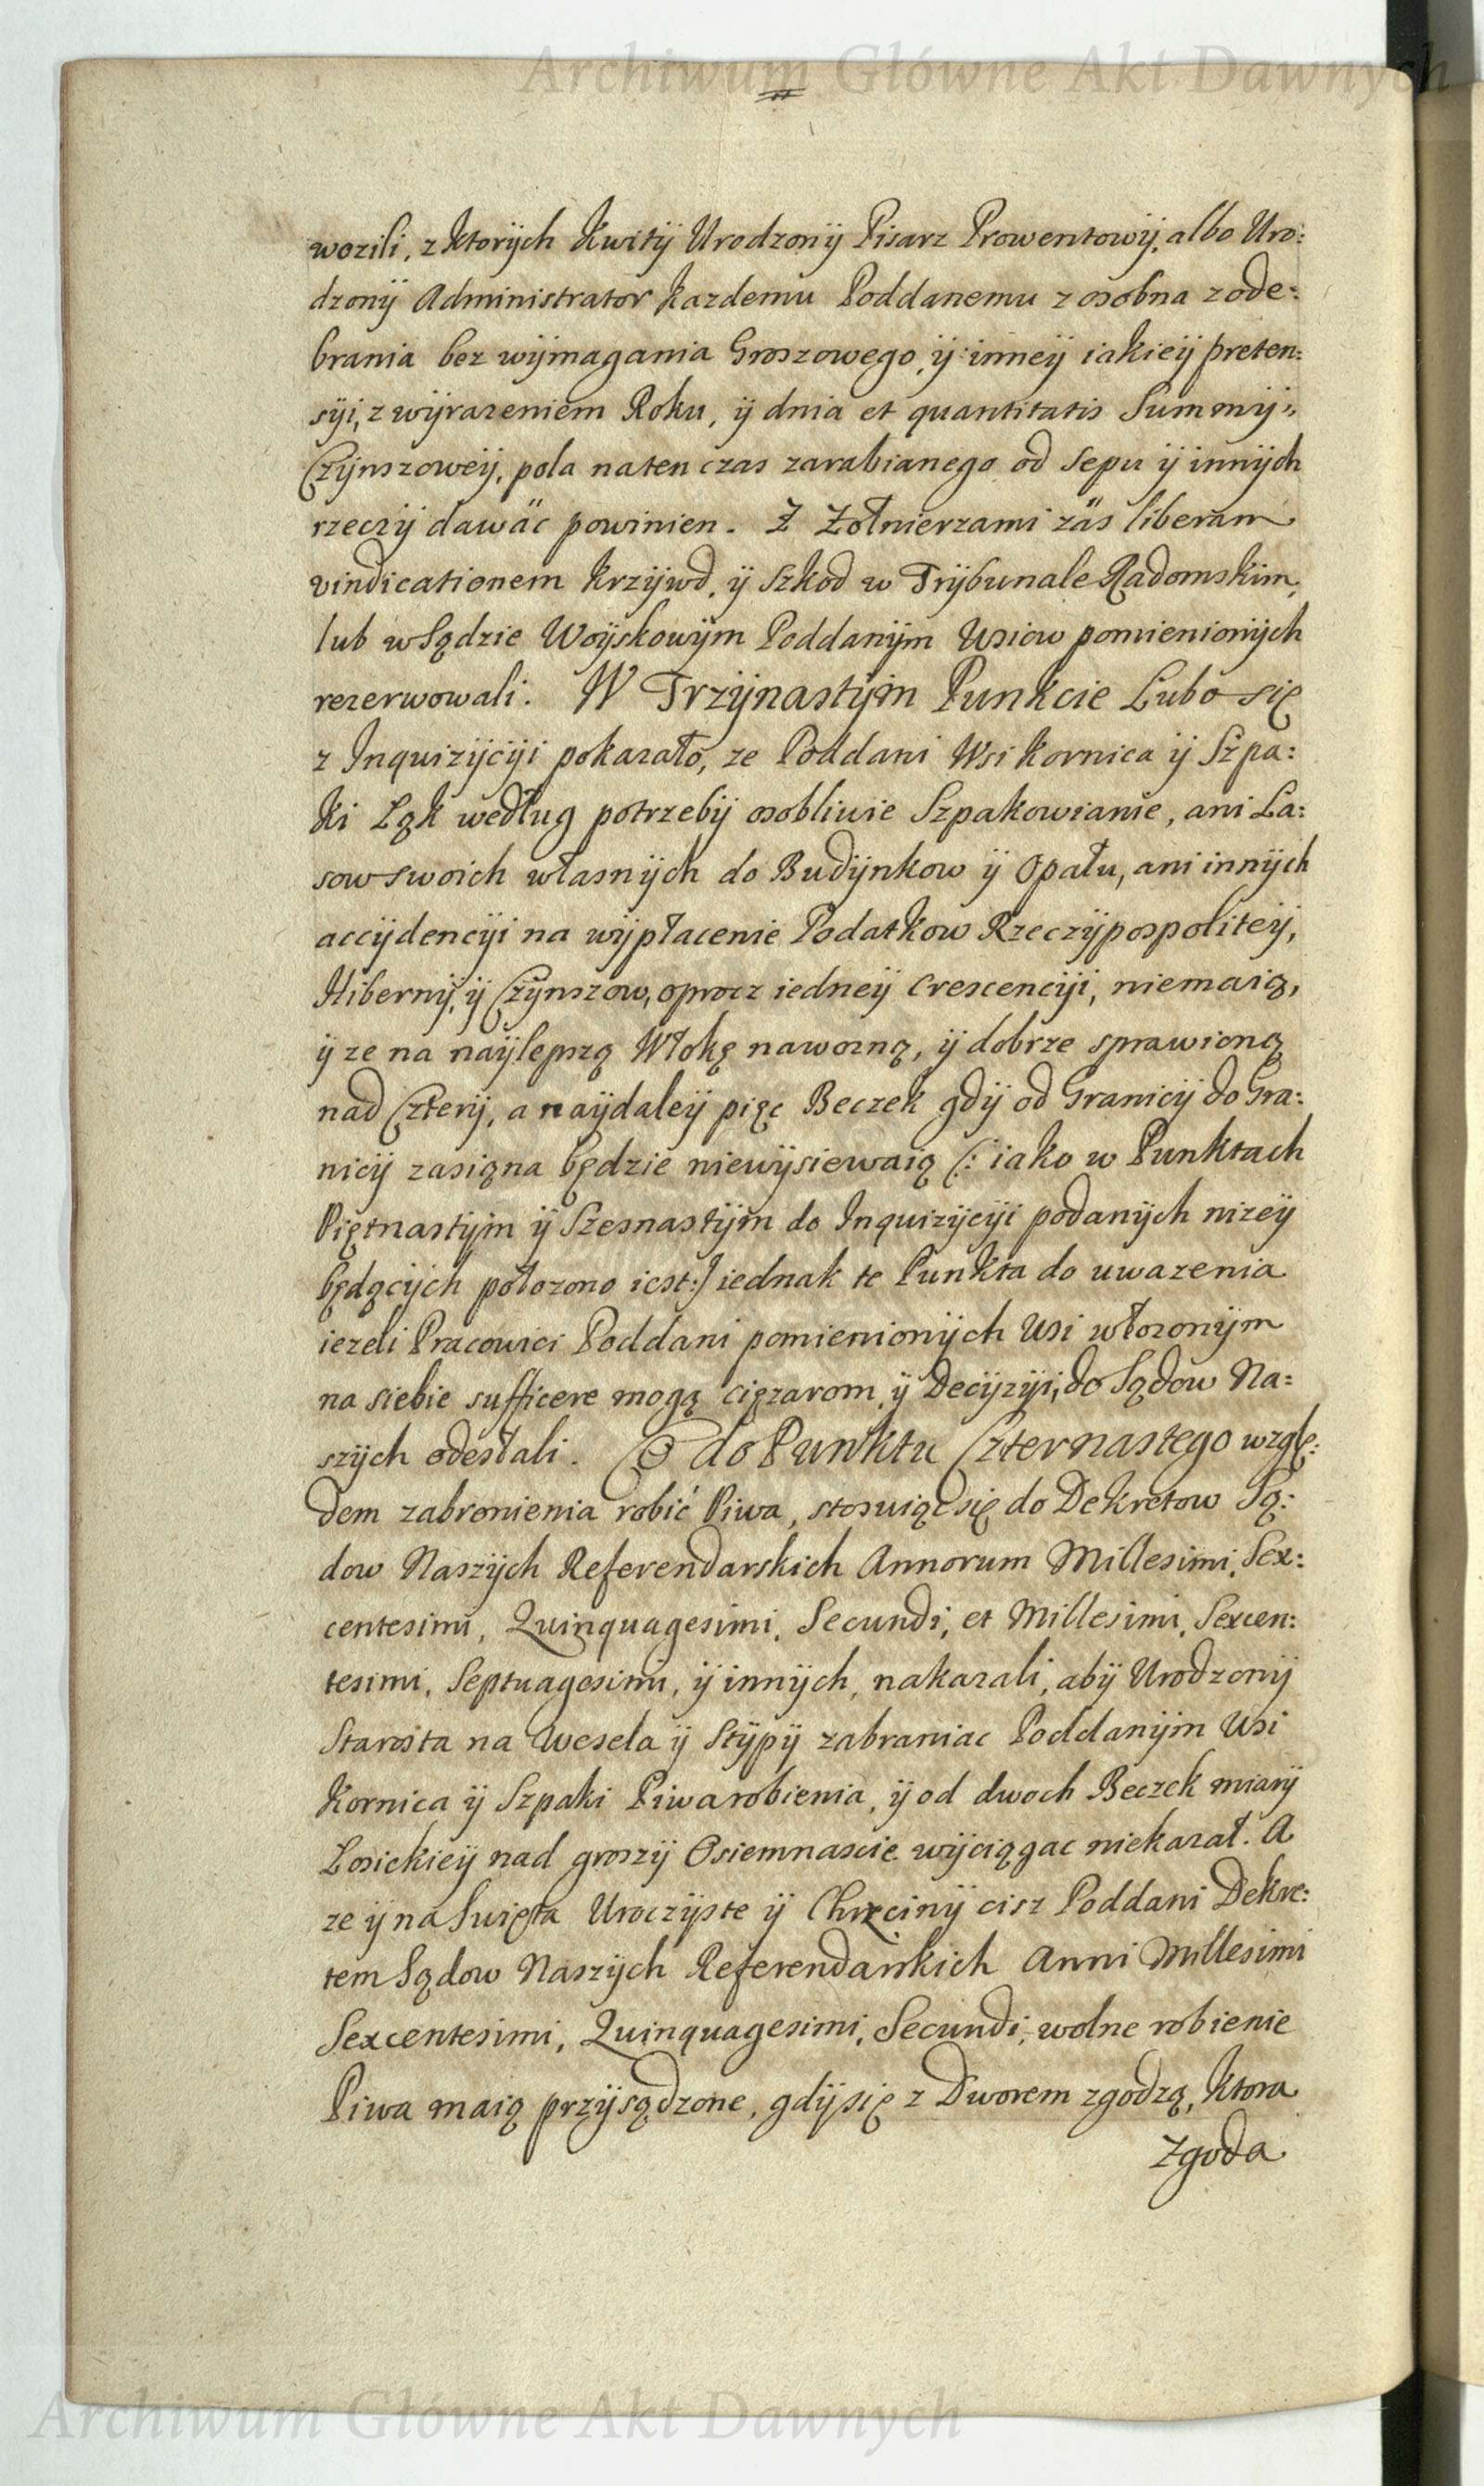 Archiwum Główne Akt Dawnych
wozili, z ktorÿch Kwitÿ Urodzonÿ Pisarz Prowentowÿ, albo Uro:
dzonÿ Administrator kazdemu Poddanemu z osobna z ode:
brania bez wÿmagania Groszowego, ÿ inneÿ iakieÿ preten:
sÿi, z wÿrazeniem Roku, ÿ dnia et quantitatis Summÿ
Czÿnszoweÿ, pola naten czas zarabianego od Sepu ÿ innÿch
rzeczÿ dawäc powinien. Z Zołnierzami zäs liberam
vindicationem krzÿwd, ÿ Szkod w Trÿbunale Radomskim,
lub w Sądzie Woÿskowÿm Poddanÿm Wsiow pomienionÿch
rezerwowali. W Trzÿnastÿm Punkcie Lubo się
z Inquizÿcÿi pokazało, ze Poddani Wsi Kornica ÿ Szpa:
ki Ląk według potrzebÿ osobliwie Szpakowianie, ani La:
sow swoich własnÿch do Budÿnkow ÿ Opału, ani innÿch
accÿdencÿi na wÿpłacenie Podatkow Rzeczÿpospoliteÿ,
Hibernÿ, ÿ Czÿnszow, oprocz iedneÿ Crescencÿi, niemaią,
ÿ ze na naÿlepszą Włokę nawozną, ÿ dobrze sprawioną
nad Czterÿ, a naÿdaleÿ pięc Beczek gdÿ od Granicÿ do Gra:
nicÿ zasiąna będzie niewÿsiewaią (: iako w Punktach
Piętnastÿm ÿ Szesnastÿm do Inquizÿcÿi podanÿch nizeÿ
będącÿch położono iest :) iednak te Punkta do uwazenia
iezeli Pracowici Poddani pomienionÿch Wsi włozonÿm
na siebie sufficere mogą cięzarom, ÿ Decÿzÿi, do Sądow Na:
szÿch odesłali. Co do Punktu Czternastego wzglę:
dem zabronienia robić Piwa, stosuiąc się do Dekretow Są:
dow Naszÿch Referendarskich Annorum Millesimi, Sex:
centesimi, Quinquagesimi, Secundi, et Millesimi, Sexcen:
tesimi, Septuagesimi, ÿ innÿch, nakazali, abÿ Urodzonÿ
Starosta na Wesela ÿ Stÿpÿ zabraniac Poddanÿm Wsi
Kornica ÿ Szpaki Piwa robienia, ÿ od dwoch Beczek miarÿ
Łosickieÿ nad groszÿ Osiemnascie wÿciągac niekazał. A
ze ÿ na Swięta Uroczÿste ÿ Chrzcinÿ cisz Poddani Dekre:
tem Sądow Naszÿch Referendarskich Anni Millesimi
Sexcentesimi, Quinquagesimi, Secundi, wolne robienie
Piwa maią przÿsądzone, gdÿ się z Dworem zgodzą, ktora
Zgoda
Archiwum Główne Akt Dawnych